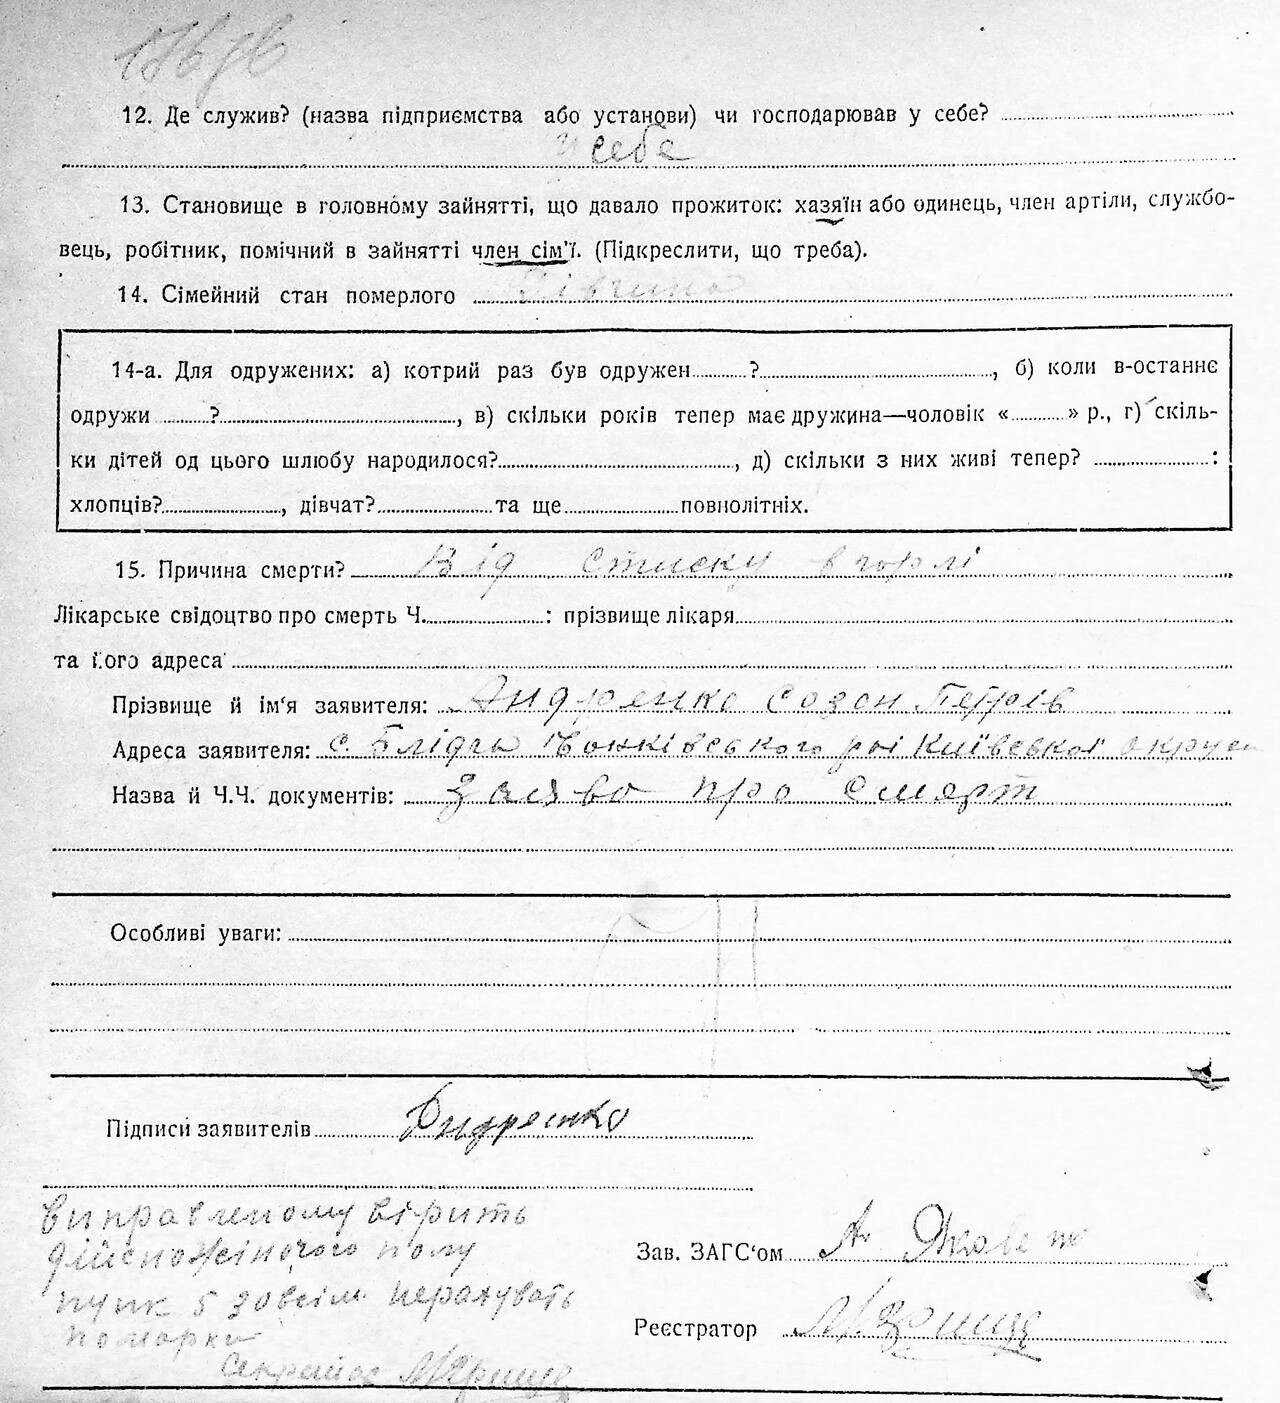 12. Де служив? (назва підприємства або установи) чи господарював у себе?
у себе
13. Становище в головному зайнятті, що давало прожиток: хазяїн або одинець, член артіли, службо-
вець, робітник, помічний в зайнятті член сім'ї. (Підкреслити, що треба).
14. Сімейний стан померлого Дівчина
14-а. Для одружених: а) котрий раз був одружен ? , б) коли в-останнє
одружи ? , в) скільки років тепер має дружина—чоловік « » р., г) скіль-
ки дітей од цього шлюбу народилося? , д) скільки з них живі тепер? :
хлопців? , дівчат? та ще повнолітніх.
15. Причина смерти? Від стиску в горлі
Лікарське свідоцтво про смерть Ч. : прізвище лікаря
та його адреса
Прізвище й ім'я заявителя: Андрѣнко Созон Петрів
Адреса заявителя: с. Блідча Київської округи
Назва й Ч.Ч. документів: Заява про смерт
Особливі уваги:
Підписи заявителів Андренко
Виправленому вірить
дійсно жіночого полу
пунк 5 зовсім нерахувать
помарки
Зав. ЗАГС'ом
Реєстратор